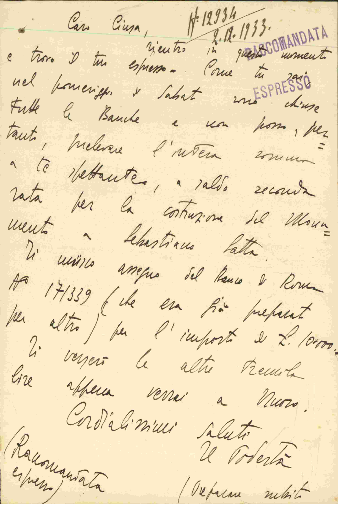 N° 12934
2.12.1933.
RACCOMANDATA
ESPRESSO
Caro Ciusa,
rientro in questo momento
e trovo il tuo espresso. Come tu sai
nel pomeriggio di Sabato sono chiuse
tutte le Banche e non posso, per=
tanto, prelevare l'intera somma
a te spettante, a saldo seconda
rata per la costruzione del Monu=
mento a Sebastiano Satta.
Ti invio assegno del Banco di Roma
N° 17/339 (che era già preparato
per altro) per l'importo di L.
Ti verserò le altre tremila
lire appena verrai a Nuoro.
Cordialissimi saluti
Il Podestà
(Raccomandata
espresso)